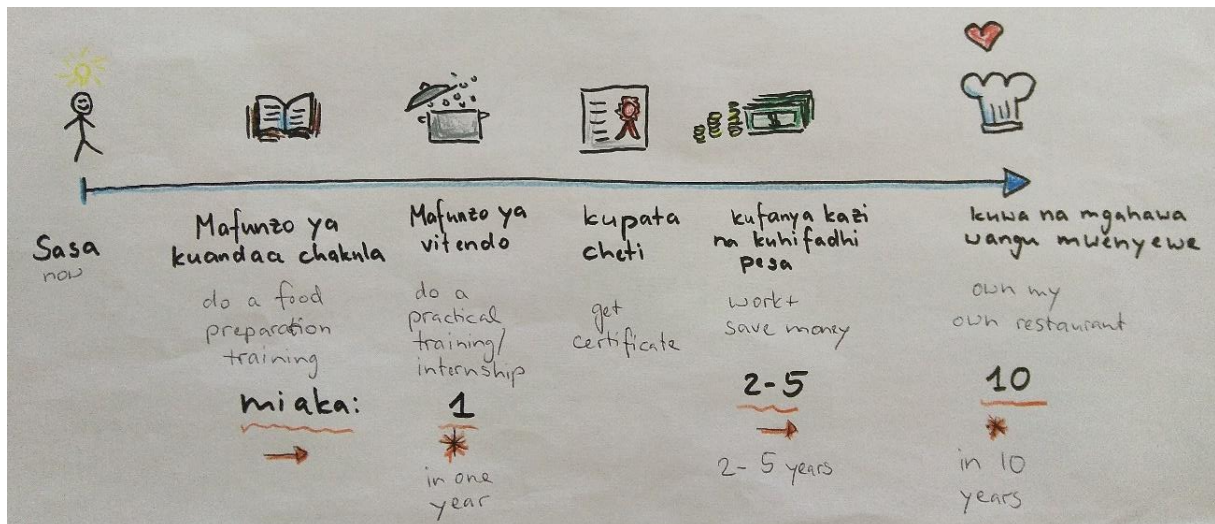 Sasa
now
Mafunzo ya
kuandaa chakula
do a food
preparation
training
Mafunzo ya
vitendo
do a
practical
training/
internship
kupata
cheti
get
certificate
kufanya kazi
na kuhifadhi
pesa
work+
save money
kuwa na mgahawa
wangu mwenyewe
own my
own restaurant
miaka:
1
in one
year
2-5
2-5 years
10
in 10
years